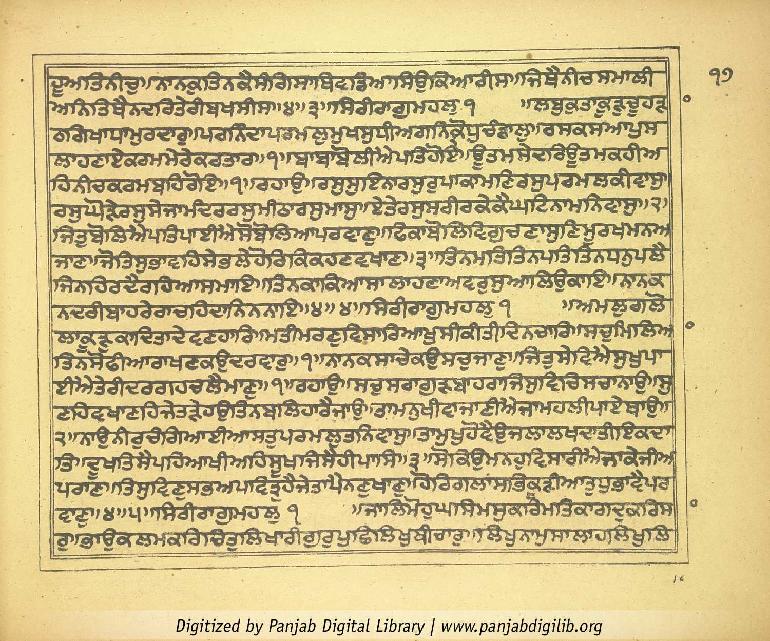 ਹੂਅਤਿਨੀਚੁ॥ਨਾਨਕੁਤਿਨਕੈਸੰਗਿਸਾਥਿਵਡਿਆਸਿਉਕਿਆਰੀਸ॥ਜਿਥੈਨੀਚਸਮਾਲੀ
ਅਨਿਤਿਥੈਨਦਰਿਤੇਰੀਬਖਸੀਸ॥੪॥੩॥ਸਿਰੀਰਾਗੁਮਹਲੁ ੧ ॥ਲਬੁਕੁਤਾਕੂੜੁਚੂਹੜਾ
ਠਗਿਖਾਧਾਮੁਰਦਾਰੁ॥ਪਰਨਿੰਦਾਪਰਮਲੁਮੁਖਸੁਧੀਅਗਨਿਕ੍ਰੋਧੁਚੰਡਾਲੁ॥ਰਸਕਸਆਪੁਸ
ਲਾਹਣਾਏਕਰਮਮੇਰੇਕਰਤਾਰ॥੧॥ਬਾਬਾਬੋਲੀਐਪਤਿਹੋਇ॥ਊਤਮਸੇਦਰਿਊਤਮਕਹੀਅ
ਹਿਨੀਚਕਰਮਬਹਿਰੋਇ॥੧॥ਰਹਾਉ॥ਰਸੁਸੁਇਨਾਰਸੁਰੁਪਾਕਾਮਣਿਰਸੁਪਰਮਲਕੀਵਾਸੁ॥
ਰਸੁਘੋੜੇਰਸੁਸੇਜਾਮੰਦਰਰਸੁਮੀਠਾਰਸੁਮਾਸੁ॥ਏਤੇਰਸਸਰੀਰਕੇਕੈਘਟਿਨਾਮਨਿਵਾਸੁ॥੨॥
ਜਿਤੁਬੋਲਿਐਪਤਿਪਾਈਐਸੋਬੋਲਿਆਪਰਵਾਣੁ॥ਫਿਕਾਬੋਲਿਵਿਗੁਚਣਾਸੁਣਿਮੂਰਖਮਨਅ
ਜਾਣ॥ਜੋਤਿਸੁਭਾਵਹਿਸੇਭਲੇਹੋਰਿਕਿਕਹਣਵਖਾਣ॥੩॥ਤਿਨਮਤਿਤਿਨਪਤਿਤਿਨਧਨੁਪਲੈ
ਜਿਨਹਿਰਦੈਰਹਿਆਸਮਾਇ॥ਤਿਨਕਾਕਿਆਸਾਲਾਹਣਾਅਵਰੁਸੁਆਲਿਉਕਾਇ॥ਨਾਨਕ
ਨਦਰੀਬਾਹਰੇਰਾਚਹਿਦਾਨਿਨਨਾਇ॥੪॥੪॥ਸਿਰੀਰਾਗੁਮਹਲੁ ੧ ॥ਅਮਲੁਗਲੋ
ਲਾਕੂੜਕਾਦਿਤਾਦੇਵਣਹਾਰਿ॥ਮਤੀਮਰਣੁਵਿਸਾਰਿਆਖੁਸੀਕੀਤੀਦਿਨਚਾਰਿ॥ਸਚੁਮਿਲਿਅ
ਤਿਨਸੋਫੀਆਰਾਖਣਕਉਦਰਵਾਰੁ॥੧॥ਨਾਨਕਸਾਚੇਕਉਸਚੁਜਾਣੁ॥ਜਿਤੁਸੇਵਿਐਸੁਖੁਪਾ
ਈਐਤੇਰੀਦਰਗਹਚਲੈਮਾਣੁ॥੧॥ਰਹਾਉ॥ਸਚੁਸਰਾਗੁੜਬਾਹਰਾਜਿਸੁਵਿਚਿਸਚਾਨਾਉ॥ਸੁ
ਣਹਿਵਖਾਣਹਿਜੇਤੜੇਹਉਤਿਨਬਲਿਹਾਰੈਜਾਉ॥ਤਾਮਨੁਖੀਵਾਜਾਣੀਐਜਾਮਹਲੀਪਾਏਥਾਉ॥
੨॥ਨਾਉਨੀਰੁਚੰਗਿਆਈਆਸਤੁਪਰਮਲੁਤਨਿਵਾਸੁ॥ਤਾਮੁਖੁਹੋਵੈਉਜਲਾਲਖਦਾਤੀਇਕਦਾ
ਤਿ॥ਦੂਖਤਿਸੈਪਹਿਆਖੀਅਹਿਸੂਖਜਿਸੈਹੀਪਾਸਿ॥੩॥ਸੋਕਿਉਮਨਹੁਵਿਸਾਰੀਐਜਾਕੇਜੀਅ
ਪਰਾਣ॥ਤਿਸੁਵਿਣੁਸਭੁਅਪਵਿਤ੍ਰੁਹੈਜੇਤਾਪੈਨਣੁਖਾਣੁ॥ਹੋਰਿਗਲਾਂਸਭਿਕੂੜੀਆਤੁਧੁਭਾਵੈਪਰ
ਵਾਣੁ॥੪॥੫॥ਸਿਰੀਰਾਗੁਮਹਲੁ ੧ ॥ਜਾਲਿਮੋਹੁਘਸਿਮਸੁਕਰਿਮਤਿਕਾਗਦੁਕਰਿਸਾ
ਰੁ॥ਭਾਉਕਲਮਕਰਿਚਿਤੁਲਿਖਾਰੀਗੁਰੁਪੁਛਿਲਿਖੁਬੀਚਾਰੁ॥ਲਿਖੁਨਾਮੁਸਾਲਾਹਲਿਖੁਲਿ
੧੭
16
Digitized by Panjab Digital Library | www.panjabdigilib.org